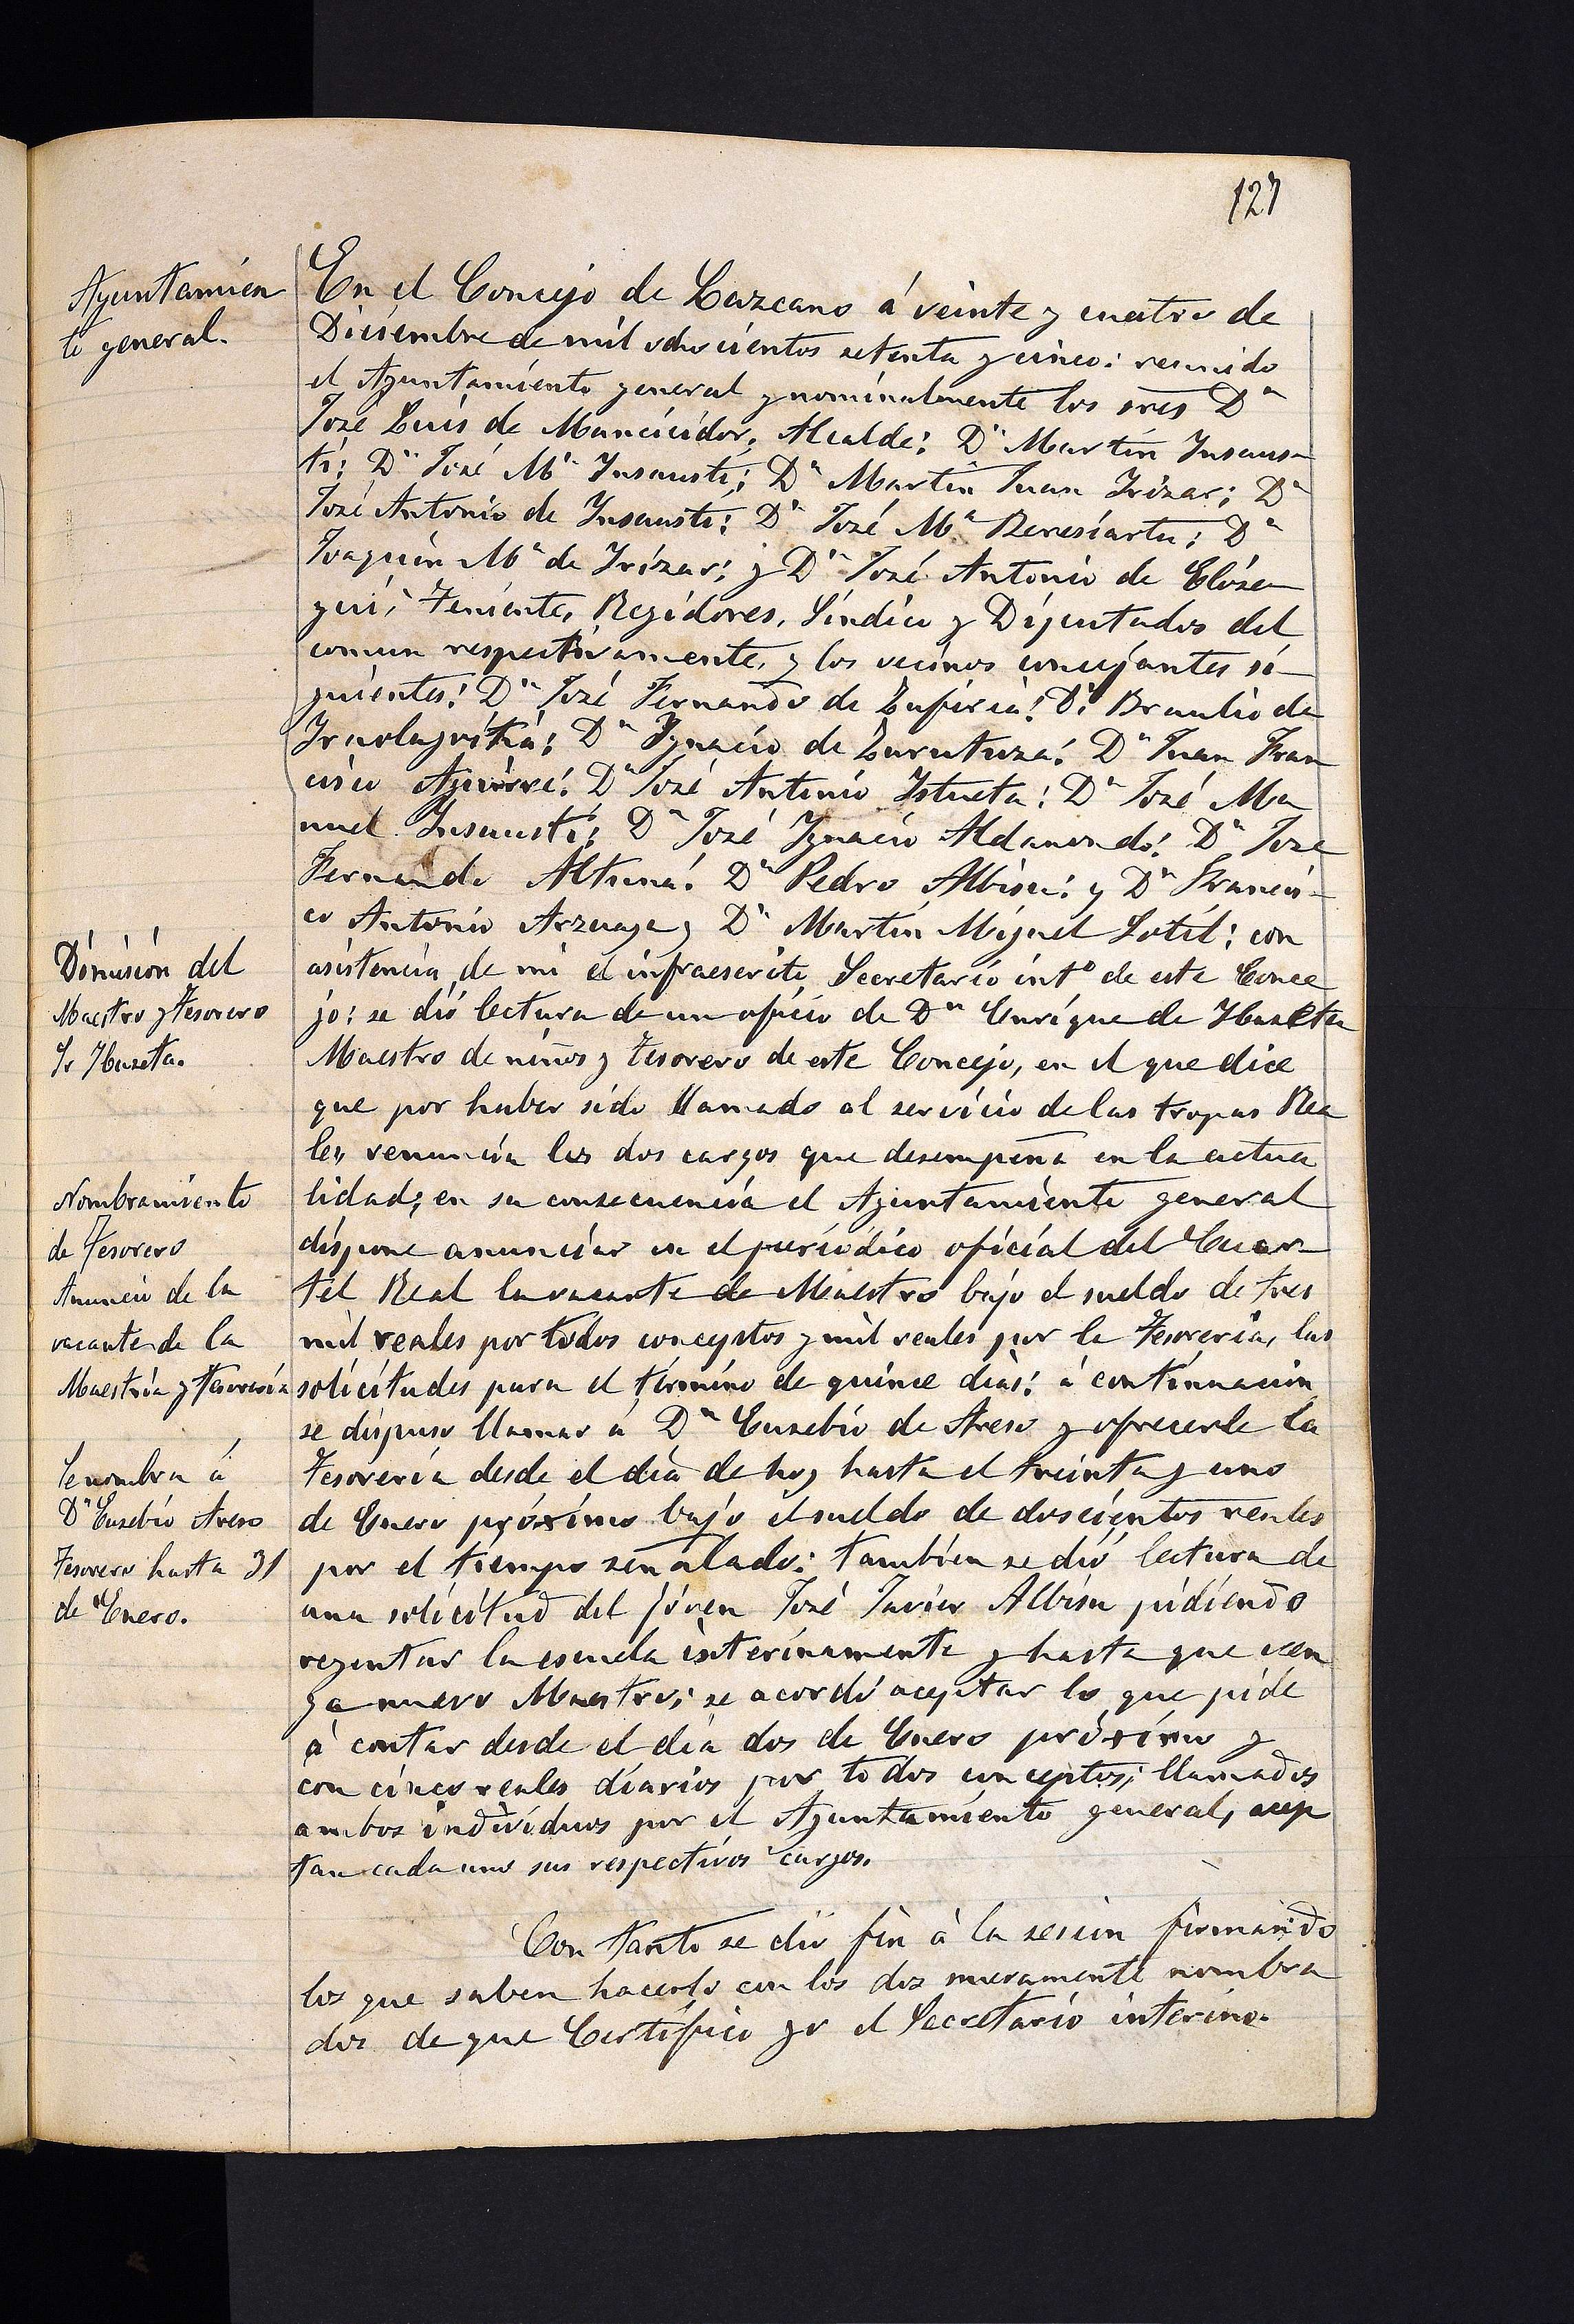 127
Ayuntamien
to general.
En el Concejo de Lazcano á veinte y cuatro de
Diciembre de mil ochocientos setenta y cinco: reunido
el Ayuntamiento general y nominalmente los sres Dn
José Luis de Mancicidor, Alcalde: Dn Martin Insaus-
ti: Dn José Ma Insausti; Dn Martin Juan Irizar; Dn
José Antonio de Insausti: Dn José Ma Beresiartu; Dn
Joaquin Ma de Irizar; y Dn José Antonio de Elóse
gui; Teniente, Regidores, Síndico y Diputados del
comun respectivamente, y los vecinos concejantes si-
guientes: Dn José Fernando de Zufiria: Dn Braulio de
Dn Ignacio de Zurutuza: Dn Juan Fran
cisco Aguirre: Dn José Antonio Istueta: Dn José Ma
nuel Insausti; Dn José Ignacio Aldanondo: Dn José
Fernando Altuna: Dn Pedro Albisu: y Dn Francis-
co Antonio Arzuaga y Dn Martin Miguel Sotil: con
asistencia de mi el infraescrito Secretario into de este Conce
jo: se dió lectura de un oficio de Dn Enrique de Ibuzeta
Maestro de niños y Tesorero de este Concejo, en el que dice
que por haber sido llamado al servicio de las tropas Rea
les, renuncia los dos cargos que desempeña en la actua
lidad; en su consecuencia el Ayuntamiento general
dispone anunciar en el periódico oficial del Cuar-
tel Real la vacante de Maestro bajo el sueldo de tres
mil reales por todos conceptos y mil reales por la Tesoreria, las
solicitudes para el término de quince dias: á continuacion
se dispuso llamar á Dn Eusebio de Areso y ofrecerle la
Tesoreria desde el dia de hoy hasta el treinta y uno
de Enero próximo bajo el sueldo de doscientos reales
por el tiempo señalado: tambien se dió lectura de
una solicitud del jóven José Javier Albisu pidiendo
regentar la escuela interinamente y hasta que ven
ga nuevo Maestro; se acordó aceptar lo que pide
á contar desde el dia dos de Enero próximo y
con cinco reales diarios por todos conceptos; llamados
ambos individuos por el Ayuntamiento general, acep
tan cada uno sus respectivos cargos.
Con tanto se dió fin á la sesion firmando
los que saben hacerlo con los dos nuevamente nombra
dos de que Certifico yo el Secretario interino.
Dimision del
Maestro y Tesorero
Sr Ibuzeta.
Nombramiento
de Tesorero
Anuncio de la
vacante de la
Maestria y Tesoreria
Se nombra á
Dn Eusebio Areso
Tesorero hasta 31
de Enero.